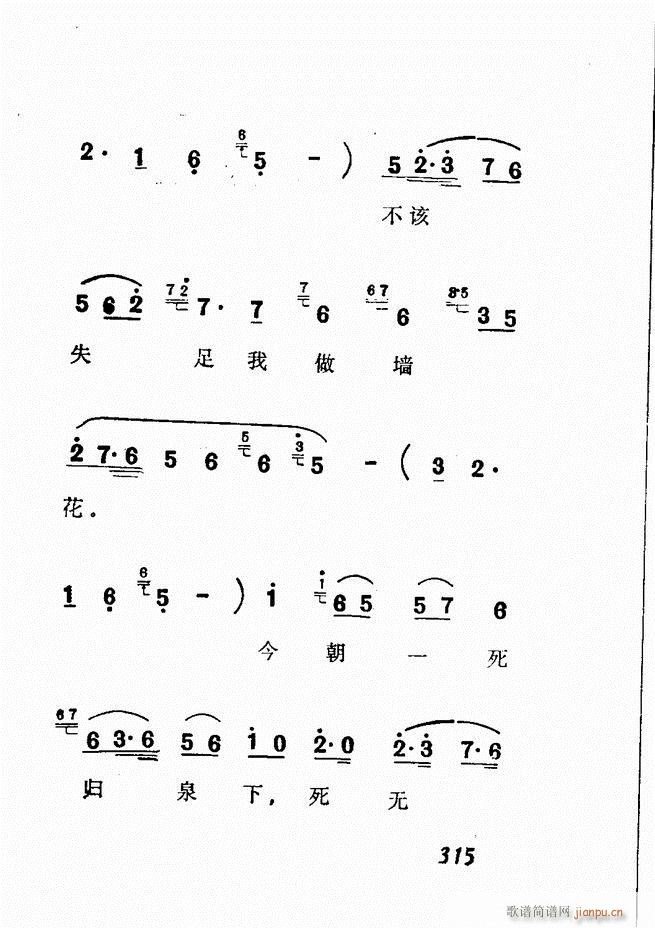 2· 1 6 6 5 - ) 5 2·3 7 6
不该
5 6 2 7 2 7· 7 7 6 6 7 6 3 5
失 足 我 做 墙
2 7·6 5 6 5 6 3 5 - ( 3 2·
花.
1 6 6 5 - ) i i 6 5 5 7 6
今 朝 一 死
6 7 6 3·6 5 6 i 0 2·0 2·3 7·6
归 泉 下, 死 无
315
歌谱简谱网
jianpu.cn